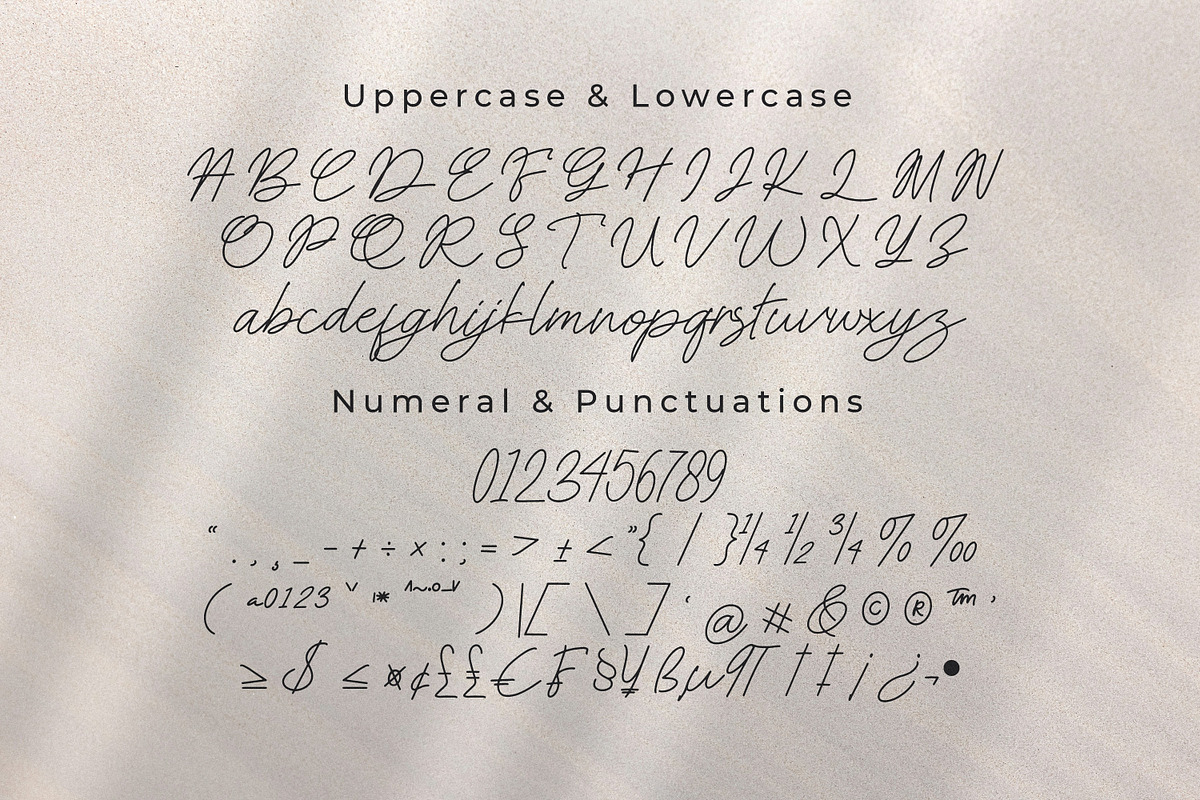 Uppercase & Lowercase
A B C D E F G H I J K L M N
O P Q R S T U V W X Y Z
abcdefghijklmnopqrstuvwxyz
Numeral & Punctuations
0123456789
“ . , ¸ _ - + ÷ × : ; = > ± < ” { / } ¼ ½ ¾ % ‰
( ª º ¹ ² ³ ˇ * ^ ~ . ) | [ \ ] ‘ @ # & © ® ™ ’
≥ $ ≤ ¤ ¢ £ ₤ € F § ¥ ß µ ¶ † ‡ ¡ ¿ ¬ •